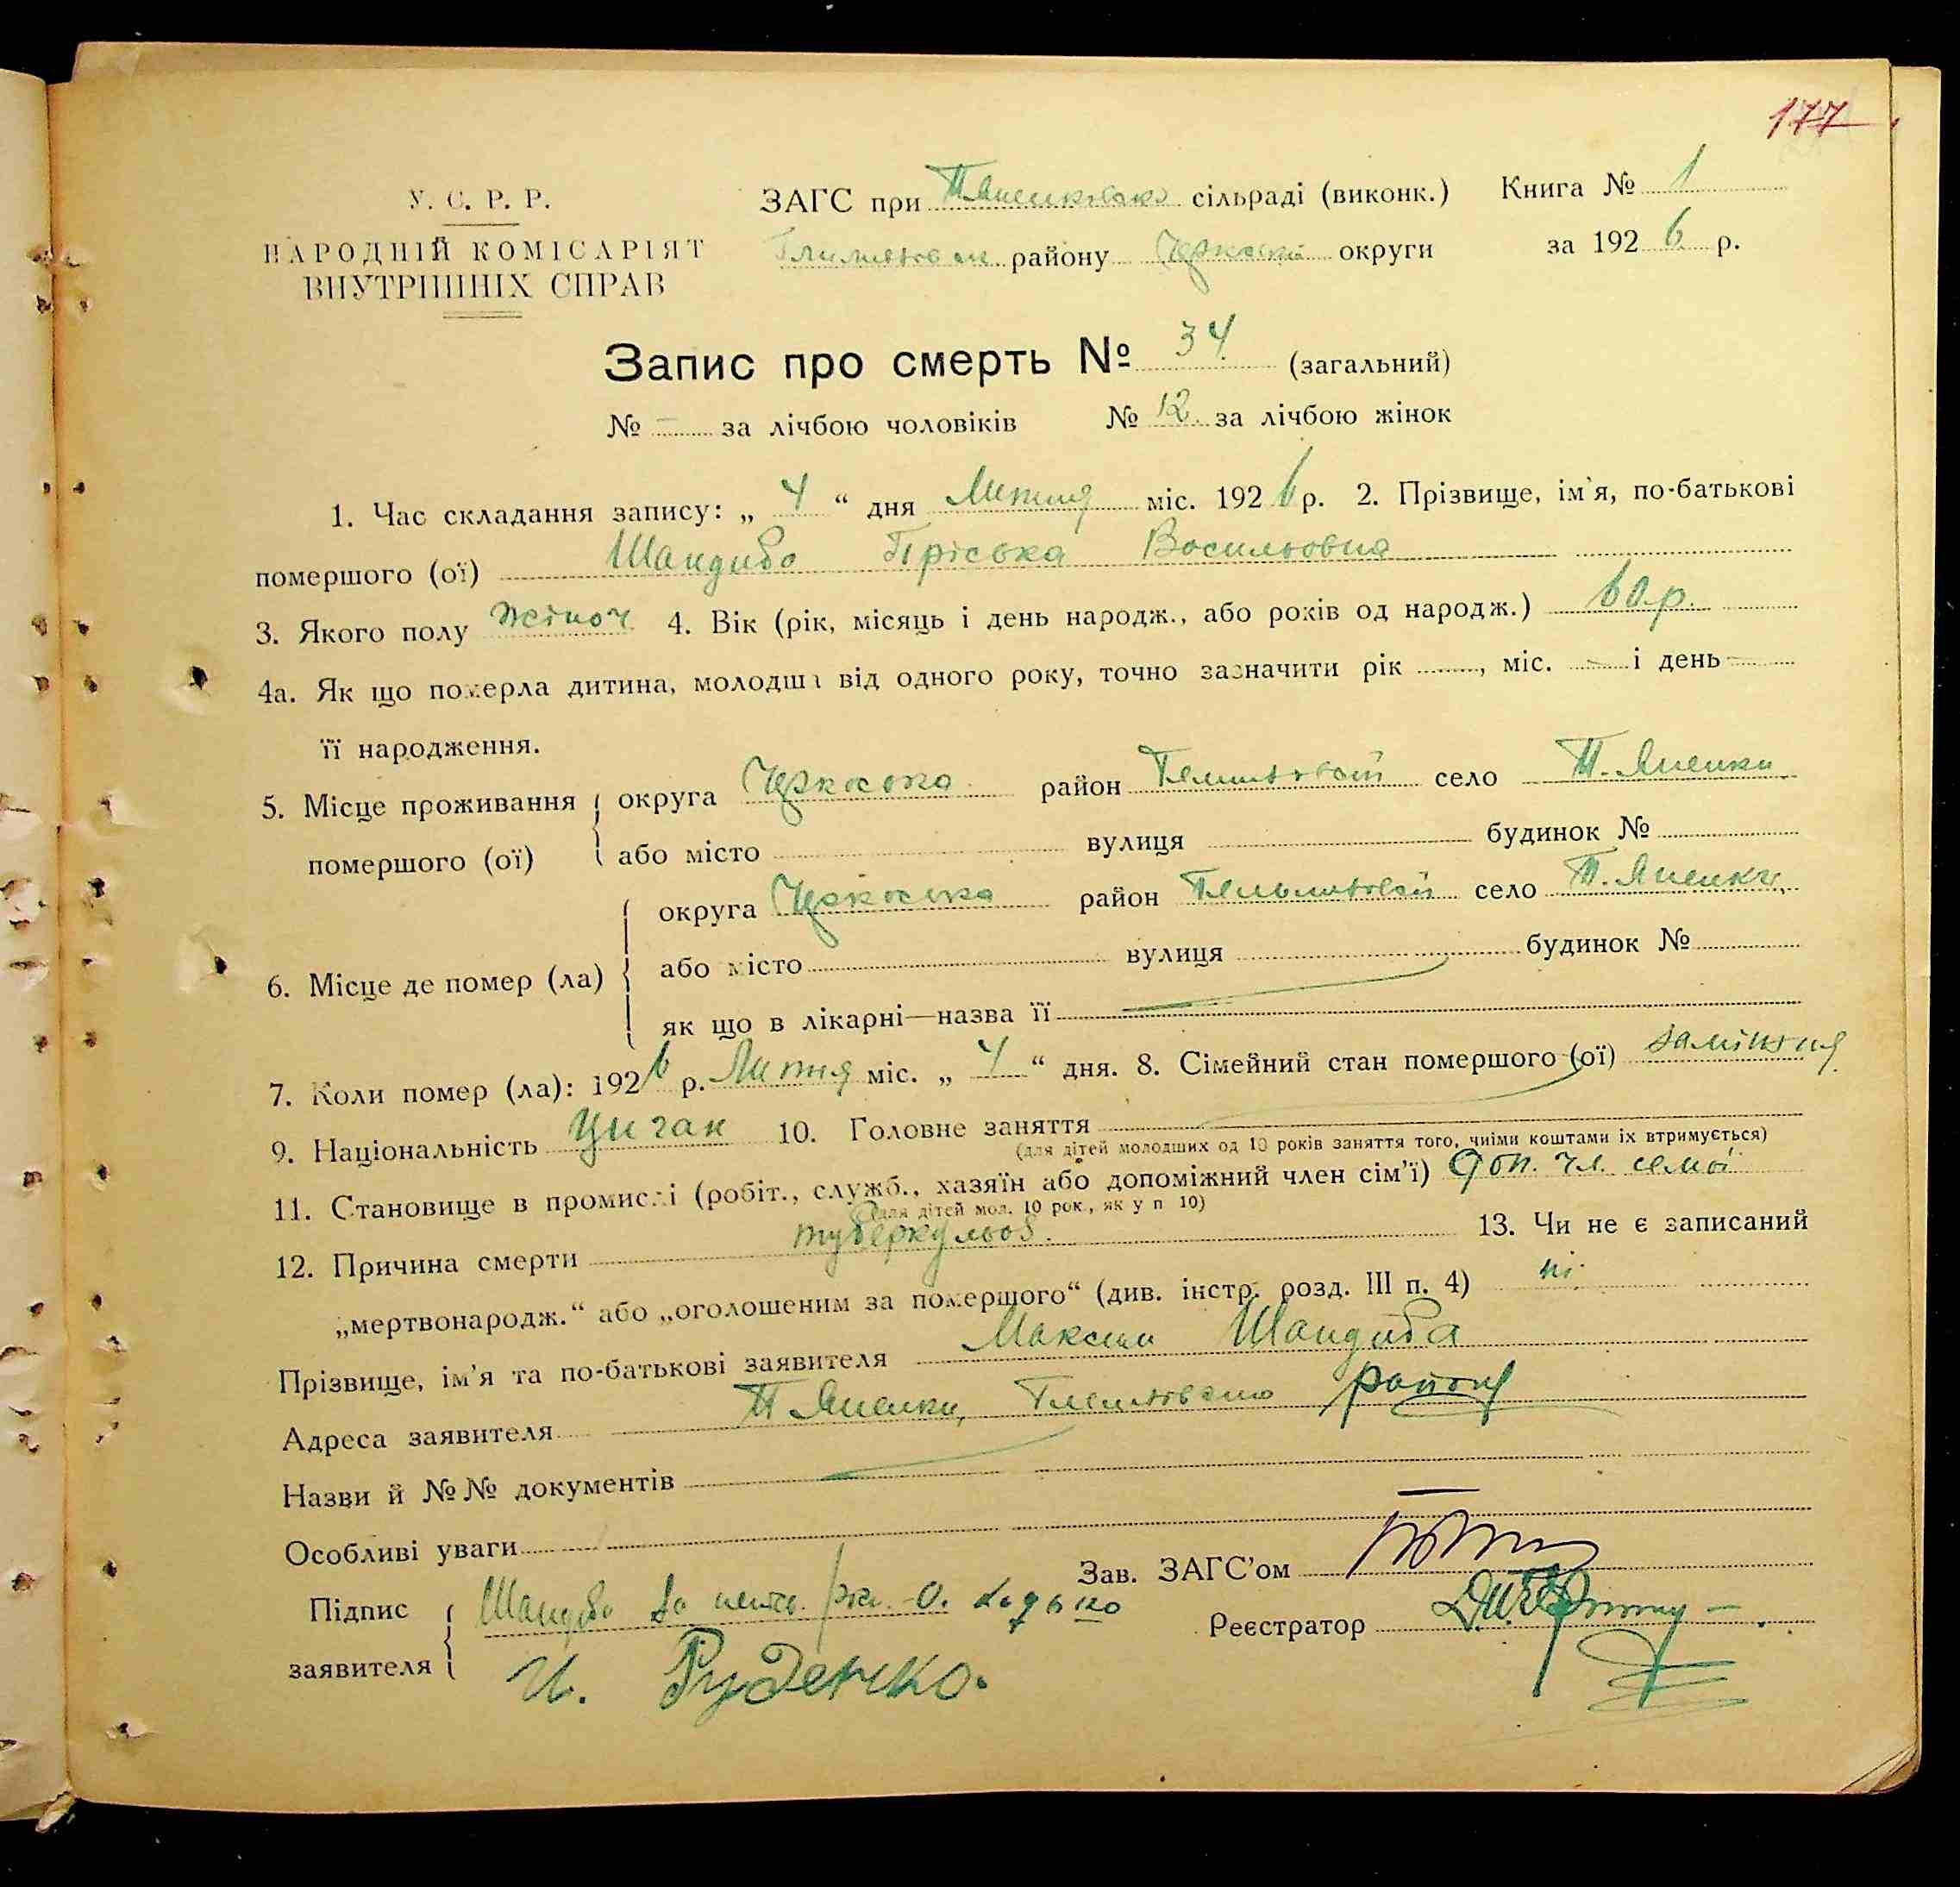 177
У. С. Р. Р.
НАРОДНІЙ КОМІСАРІЯТ
ВНУТРІШНІХ СПРАВ
ЗАГС при сільраді (виконк.) Книга № 1
району Черкаської округи за 1926 р.
Запис про смерть № 34 (загальний)
№ – за лічбою чоловіків № 12 за лічбою жінок
1. Час складання запису: „ 4 “ дня Липня міс. 1926 р. 2. Прізвище, ім'я, по-батькові
помершого (ої) Шандиба Пріська Васильовна
3. Якого полу жіноч 4. Вік (рік, місяць і день народж., або років од народж.) 60 р.
4а. Як що померла дитина, молодша від одного року, точно зазначити рік , міс. – і день –
її народження.
5. Місце проживання помершого (ої) округа Черкаська район село Т. Яценки
або місто вулиця будинок №
6. Місце де помер (ла) округа Черкаська район село Т. Яценки
або місто вулиця будинок №
як що в лікарні—назва її
7. Коли помер (ла): 1926 р. Липня міс. „ 4 “ дня. 8. Сімейний стан помершого (ої) заміжня
9. Національність Циган 10. Головне заняття
(для дітей молодших од 10 років заняття того, чиїми коштами їх втримується)
11. Становище в промислі (робіт., служб., хазяїн або допоміжний член сім'ї) Доп. чл. семьї
(для дітей мол. 10 рок., як у п 10)
12. Причина смерти туберкульоз. 13. Чи не є записаний
„мертвонародж.“ або „оголошеним за помершого“ (див. інстр. розд. III п. 4) ні.
Прізвище, ім'я та по-батькові заявителя Максим Шандиба
Адреса заявителя Т Яценки, района
Назви й №№ документів
Особливі уваги
Зав. ЗАГС'ом
Підпис заявителя Шандиба за
И. Руденко.
Реєстратор